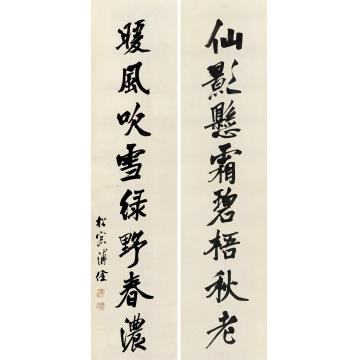 仙影懸霜碧梧秋老
暖風吹雪綠野春濃
松窗溥佺